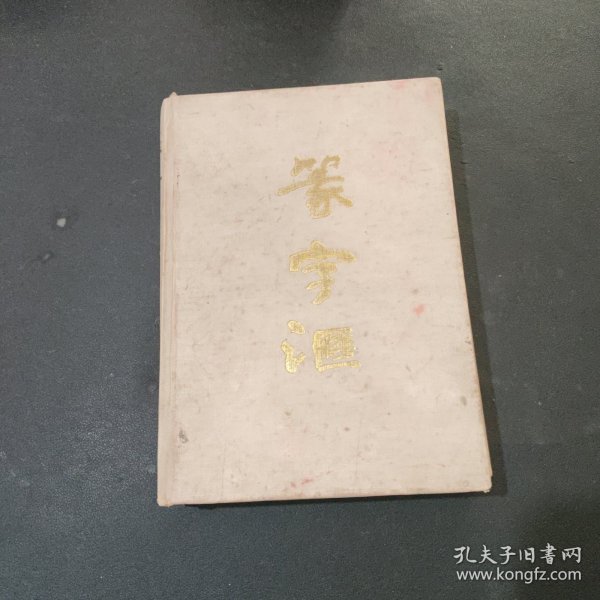 篆字汇
孔夫子旧書网
www.kongfz.com